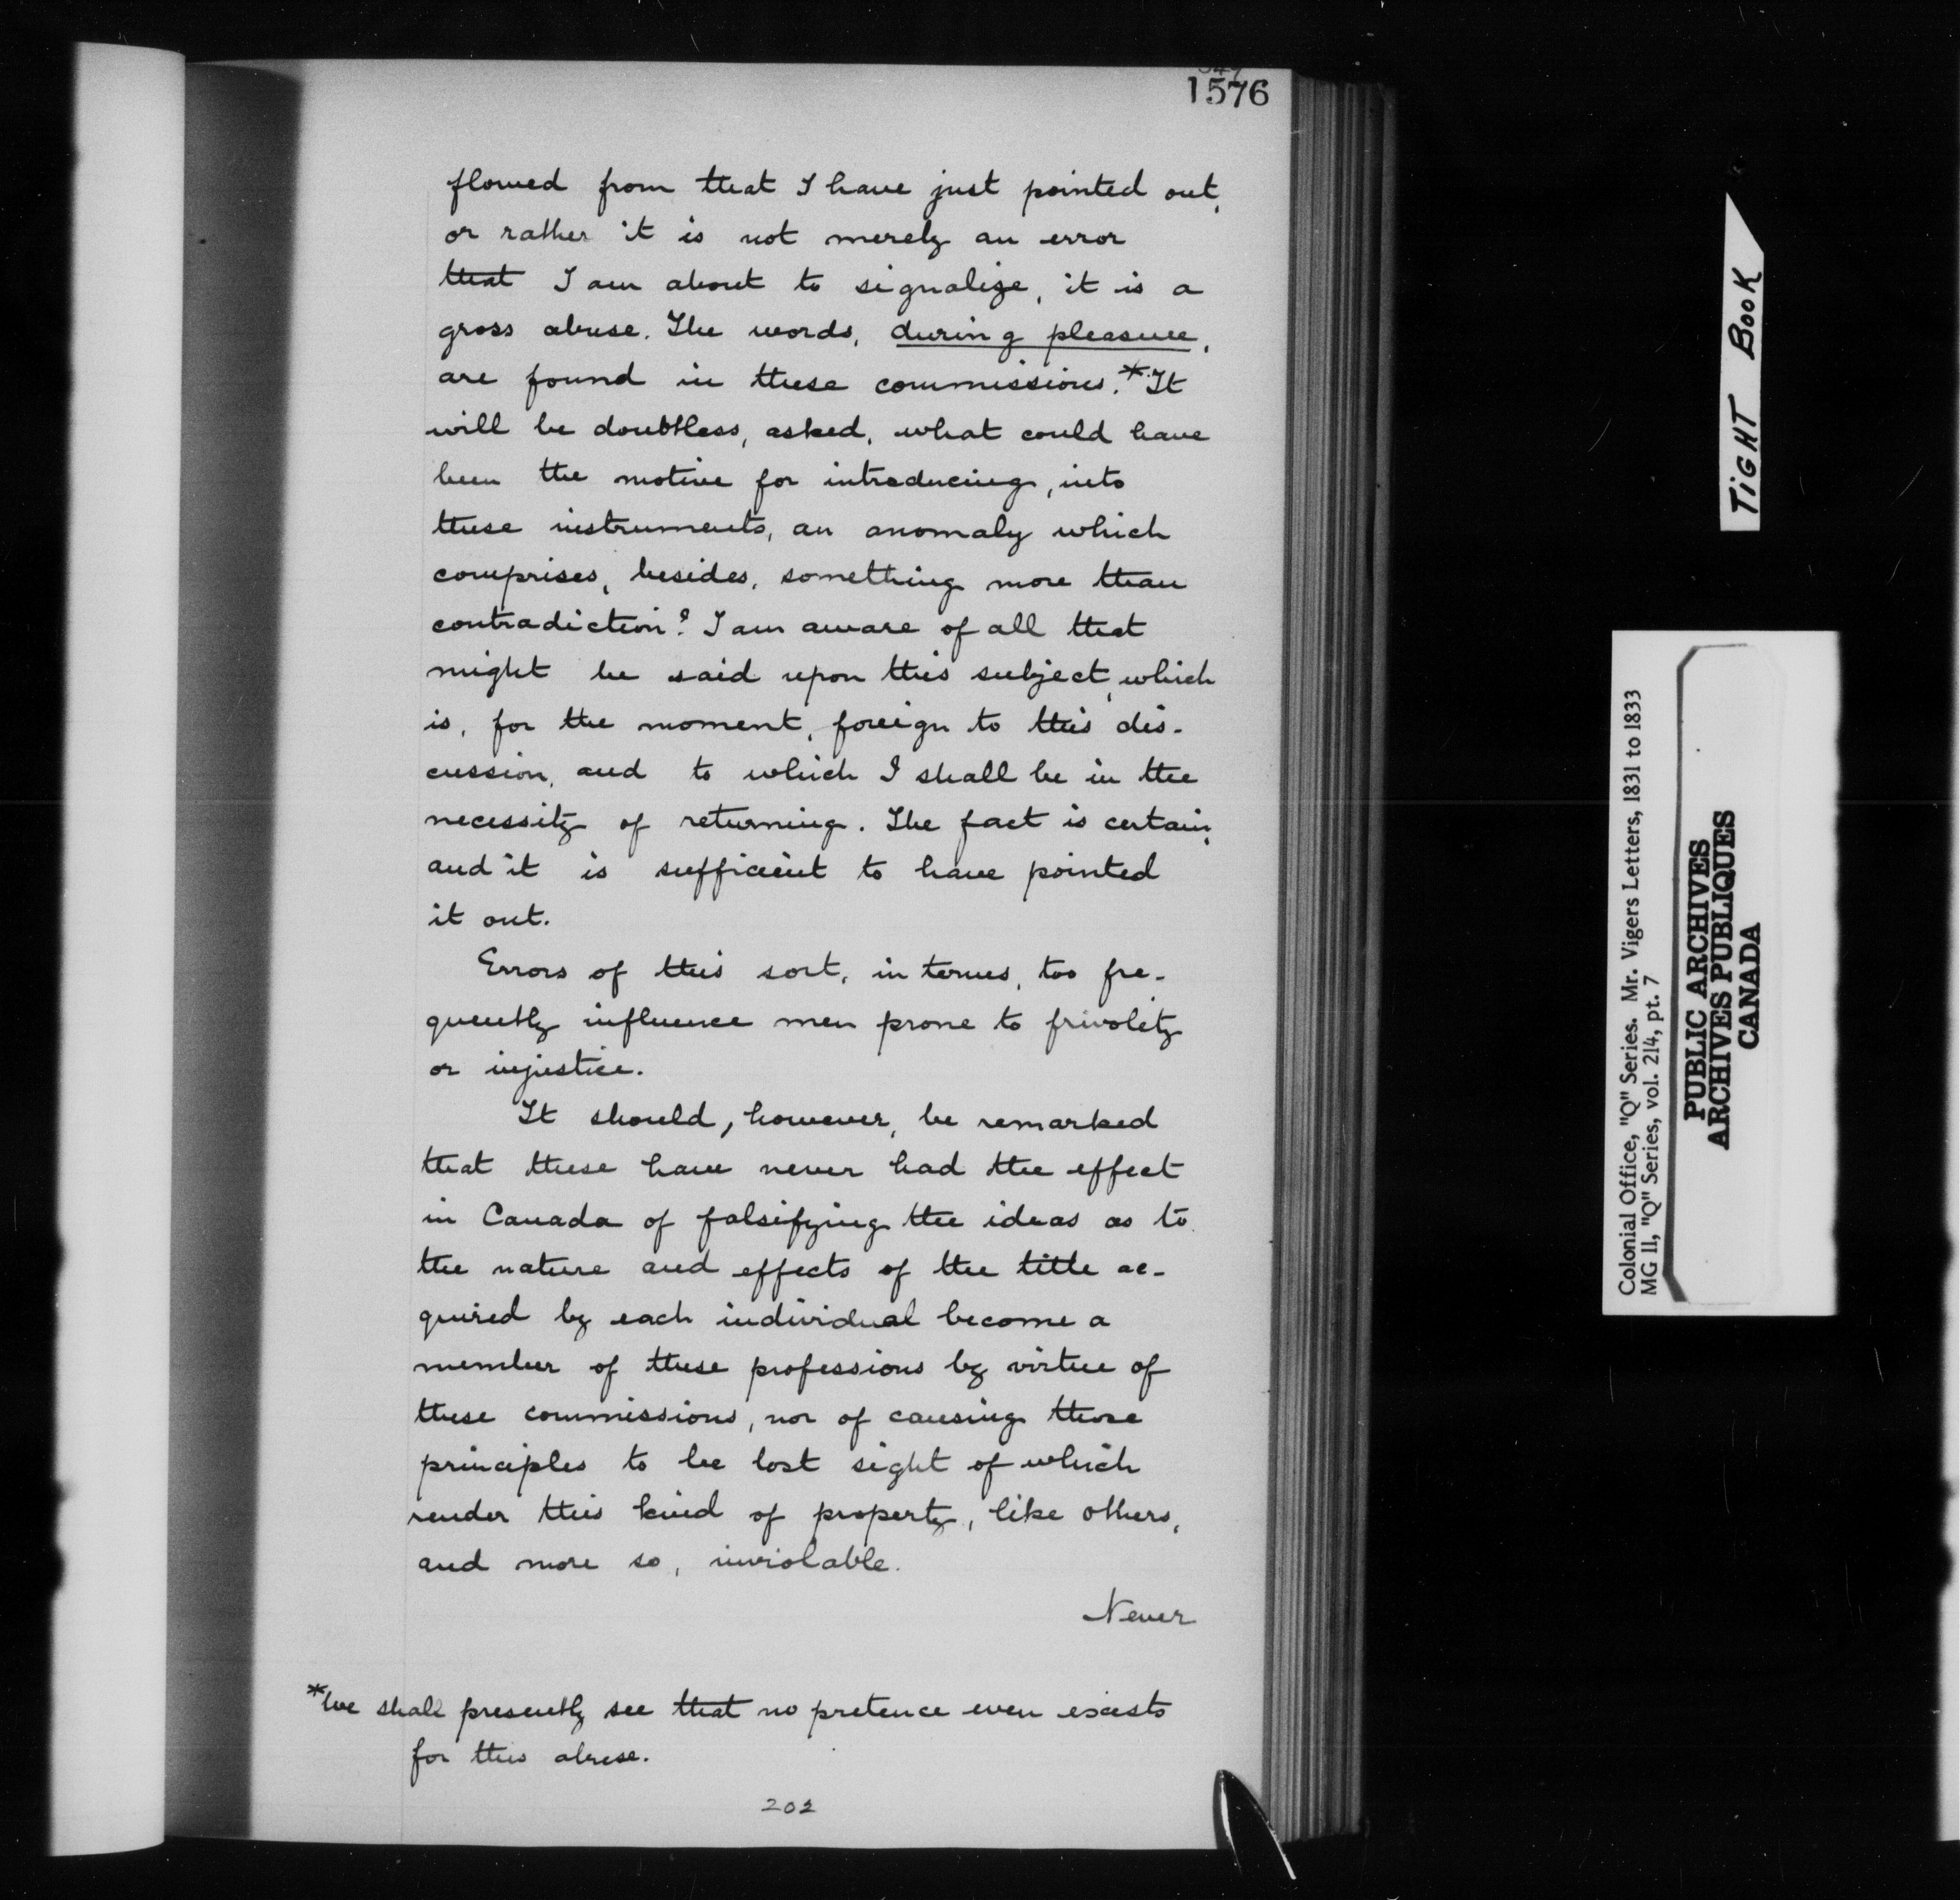 1576
flowed from that I have just pointed out,
or rather it is not merely an error
that I am about to signalize, it is a
gross abuse. The words, during pleasure,
are found in these commissions.* It
will be doubtless, asked, what could have
been the motive for introducing, into
these instruments, an anomaly which
comprises, besides, something more than
contradiction? I am aware of all that
might be said upon this subject, which
is, for the moment, foreign to this dis-
cussion, and to which I shall be in the
necessity of returning. The fact is certain,
and it is sufficient to have pointed
it out.
Errors of this sort, in terms, too fre-
quently influence men prone to frivolity
or injustice.
It should, however, be remarked
that these have never had the effect
in Canada of falsifying the ideas as to
the nature and effects of the title ac-
quired by each individual become a
member of these professions by virtue of
these commissions, nor of causing those
principles to be lost sight of which
render this kind of property, like others,
and more so, inviolable.
Never
*We shall presently see that no pretence even exists
for this abuse.
202
TIGHT BOOK
Colonial Office, "Q" Series. Mr. Vigers Letters, 1831 to 1833
MG 11, "Q" Series, vol. 214, pt. 7
PUBLIC ARCHIVES
ARCHIVES PUBLIQUES
CANADA